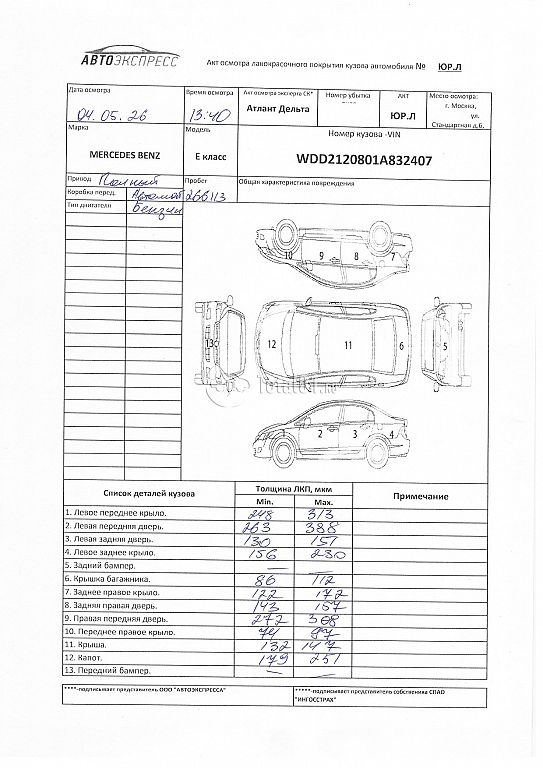 АВТОЭКСПРЕСС
Акт осмотра лакокрасочного покрытия кузова автомобиля № ЮР.Л
Дата осмотра Время осмотра Акт осмотра эксперта СК* Номер убытка АКТ Место осмотра:
04.05.26 13:40 Атлант Дельта ----- ЮР.Л г. Москва, ул. Стандартная д.6.
Марка Модель Номер кузова -VIN
MERCEDES BENZ Е класс WDD2120801A832407
Привод Полный Пробег Общая характеристика повреждения
Коробка перед. Автомат 266113
Тип двигателя Бензин
10 9 8 7
13 12 11 6 5
2 3 4
Список деталей кузова Толщина ЛКП, мкм Примечание
Min. Max.
1. Левое переднее крыло. 248 313
2. Левая передняя дверь. 263 388
3. Левая задняя дверь. 130 151
4. Левое заднее крыло. 156 230
5. Задний бампер. —
6. Крышка багажника. 86 112
7. Заднее правое крыло. 122 172
8. Задняя правая дверь. 143 157
9. Правая передняя дверь. 272 308
10. Переднее правое крыло. 74 87
11. Крыша. 132 147
12. Капот. 179 251
13. Передний бампер. — —
****-подписывает представитель ООО "АВТОЭКСПРЕССА" *****-подписывает представитель собственика СПАО
"ИНГОССТРАХ"